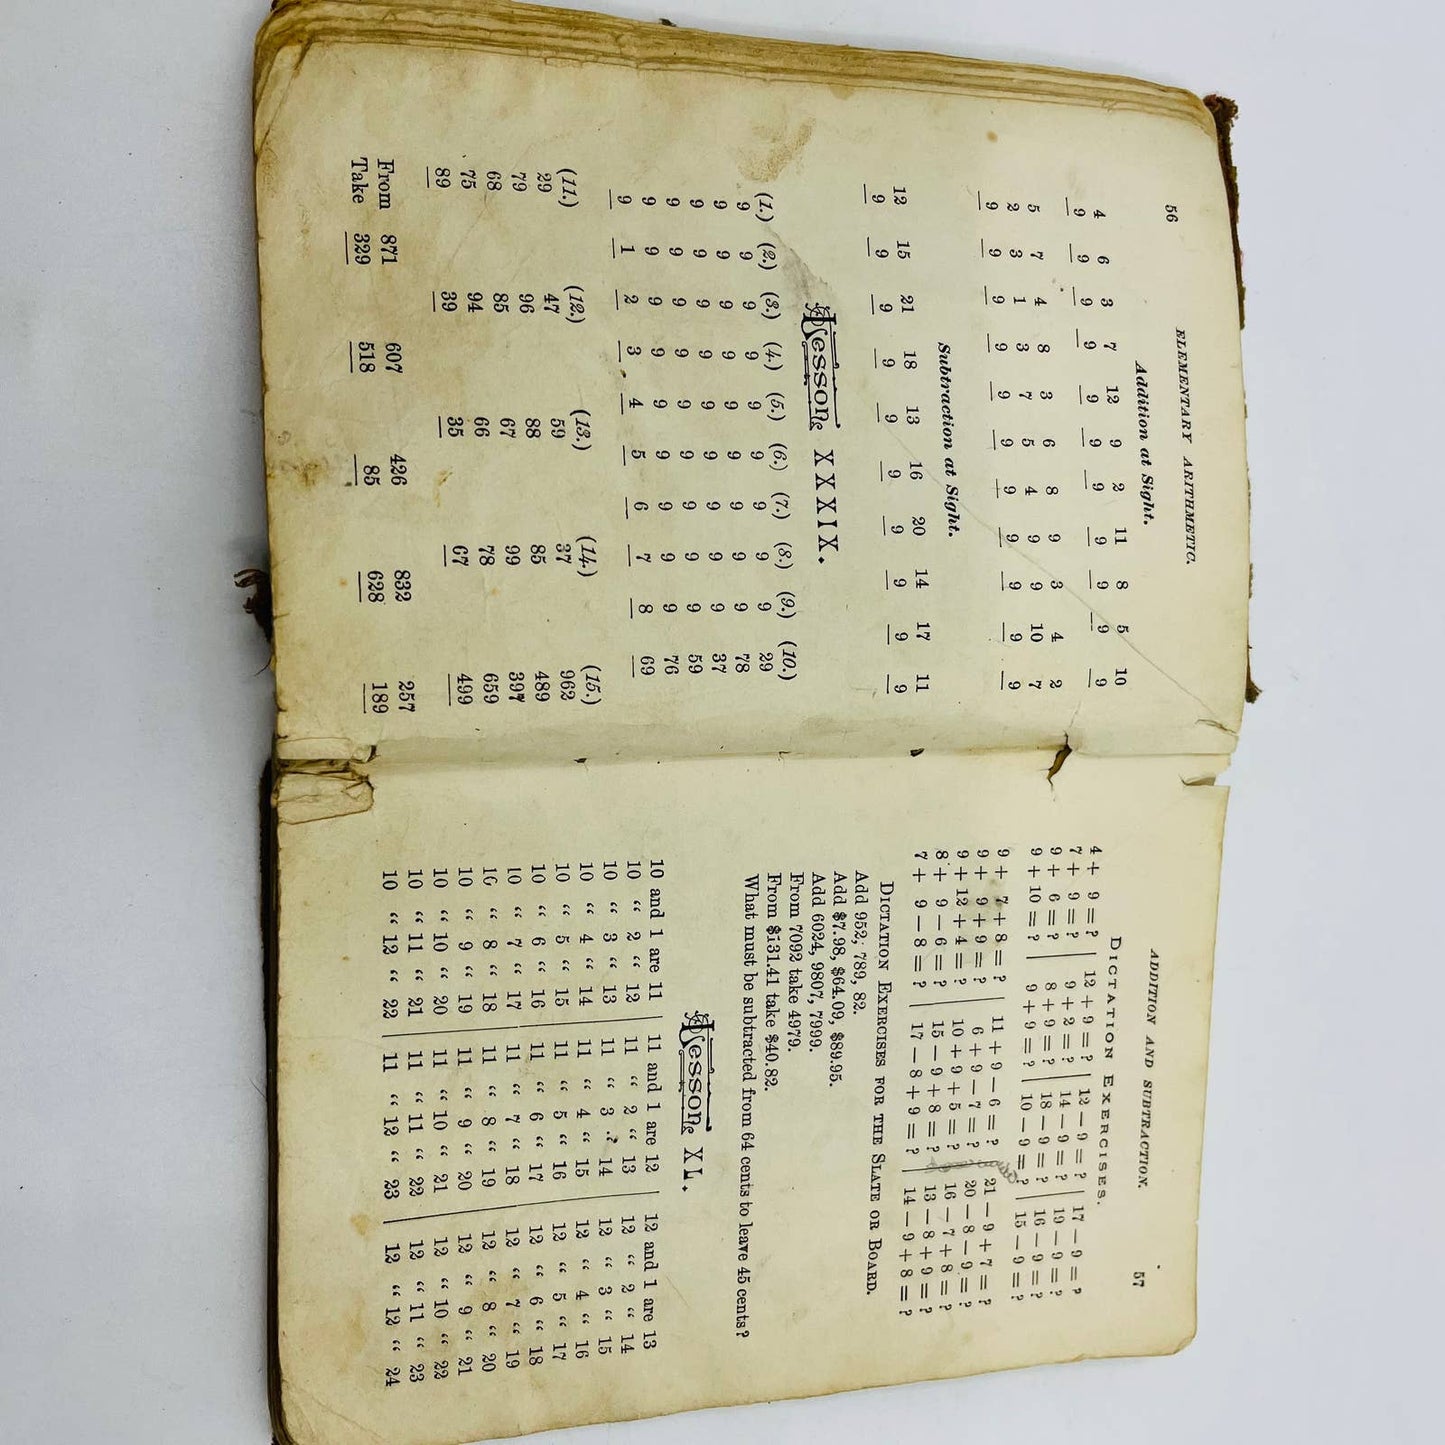 56 ELEMENTARY ARITHMETIC.
Addition at Sight.
4 6 3 7 12 9 2 11 8 5 10
9 9 9 9 9 9 9 9 9 9 9
5 7 4 8 3 6 8 9 3 4 2
2 3 1 3 7 5 4 9 9 10 7
9 9 9 9 9 9 9 9 9 9 9
Subtraction at Sight.
12 15 21 18 13 16 20 14 17 11
9 9 9 9 9 9 9 9 9 9
Lesson XXXIX.
(1.) (2.) (3.) (4.) (5.) (6.) (7.) (8.) (9.) (10.)
9 9 9 9 9 9 9 9 9 29
9 9 9 9 9 9 9 9 9 78
9 9 9 9 9 9 9 9 9 37
9 9 9 9 9 9 9 9 9 59
9 9 9 9 9 9 9 9 9 76
9 1 2 3 4 5 6 7 8 69
(11.) (12.) (13.) (14.) (15.)
29 47 59 37 962
79 96 88 85 489
68 85 67 99 397
75 94 66 78 659
89 39 35 67 499
From 871 607 426 832 257
Take 329 518 85 628 189
ADDITION AND SUBTRACTION. 57
DICTATION EXERCISES.
4 + 9 = ? | 12 + 9 = ? | 12 − 9 = ? | 17 − 9 = ?
7 + 9 = ? | 9 + 2 = ? | 14 − 9 = ? | 19 − 9 = ?
9 + 6 = ? | 8 + 9 = ? | 18 − 9 = ? | 16 − 9 = ?
9 + 10 = ? | 9 + 9 = ? | 10 − 9 = ? | 15 − 9 = ?
9 + 7 + 8 = ? | 11 + 9 − 6 = ? | 21 − 9 + 7 = ?
9 + 9 + 9 = ? | 6 + 9 − 7 = ? | 20 − 8 − 9 = ?
9 + 12 + 4 = ? | 10 + 9 + 5 = ? | 16 − 7 + 8 = ?
8 + 9 − 6 = ? | 15 − 9 + 8 = ? | 13 − 8 + 9 = ?
7 + 9 − 8 = ? | 17 − 8 + 9 = ? | 14 − 9 + 8 = ?
DICTATION EXERCISES FOR THE SLATE OR BOARD.
Add 952, 789, 82.
Add $7.98, $64.09, $89.95.
Add 6024, 9807, 7999.
From 7092 take 4979.
From $131.41 take $40.82.
What must be subtracted from 64 cents to leave 45 cents?
Lesson XL.
10 and 1 are 11 | 11 and 1 are 12 | 12 and 1 are 13
10 “ 2 “ 12 | 11 “ 2 “ 13 | 12 “ 2 “ 14
10 “ 3 “ 13 | 11 “ 3 “ 14 | 12 “ 3 “ 15
10 “ 4 “ 14 | 11 “ 4 “ 15 | 12 “ 4 “ 16
10 “ 5 “ 15 | 11 “ 5 “ 16 | 12 “ 5 “ 17
10 “ 6 “ 16 | 11 “ 6 “ 17 | 12 “ 6 “ 18
10 “ 7 “ 17 | 11 “ 7 “ 18 | 12 “ 7 “ 19
10 “ 8 “ 18 | 11 “ 8 “ 19 | 12 “ 8 “ 20
10 “ 9 “ 19 | 11 “ 9 “ 20 | 12 “ 9 “ 21
10 “ 10 “ 20 | 11 “ 10 “ 21 | 12 “ 10 “ 22
10 “ 11 “ 21 | 11 “ 11 “ 22 | 12 “ 11 “ 23
10 “ 12 “ 22 | 11 “ 12 “ 23 | 12 “ 12 “ 24